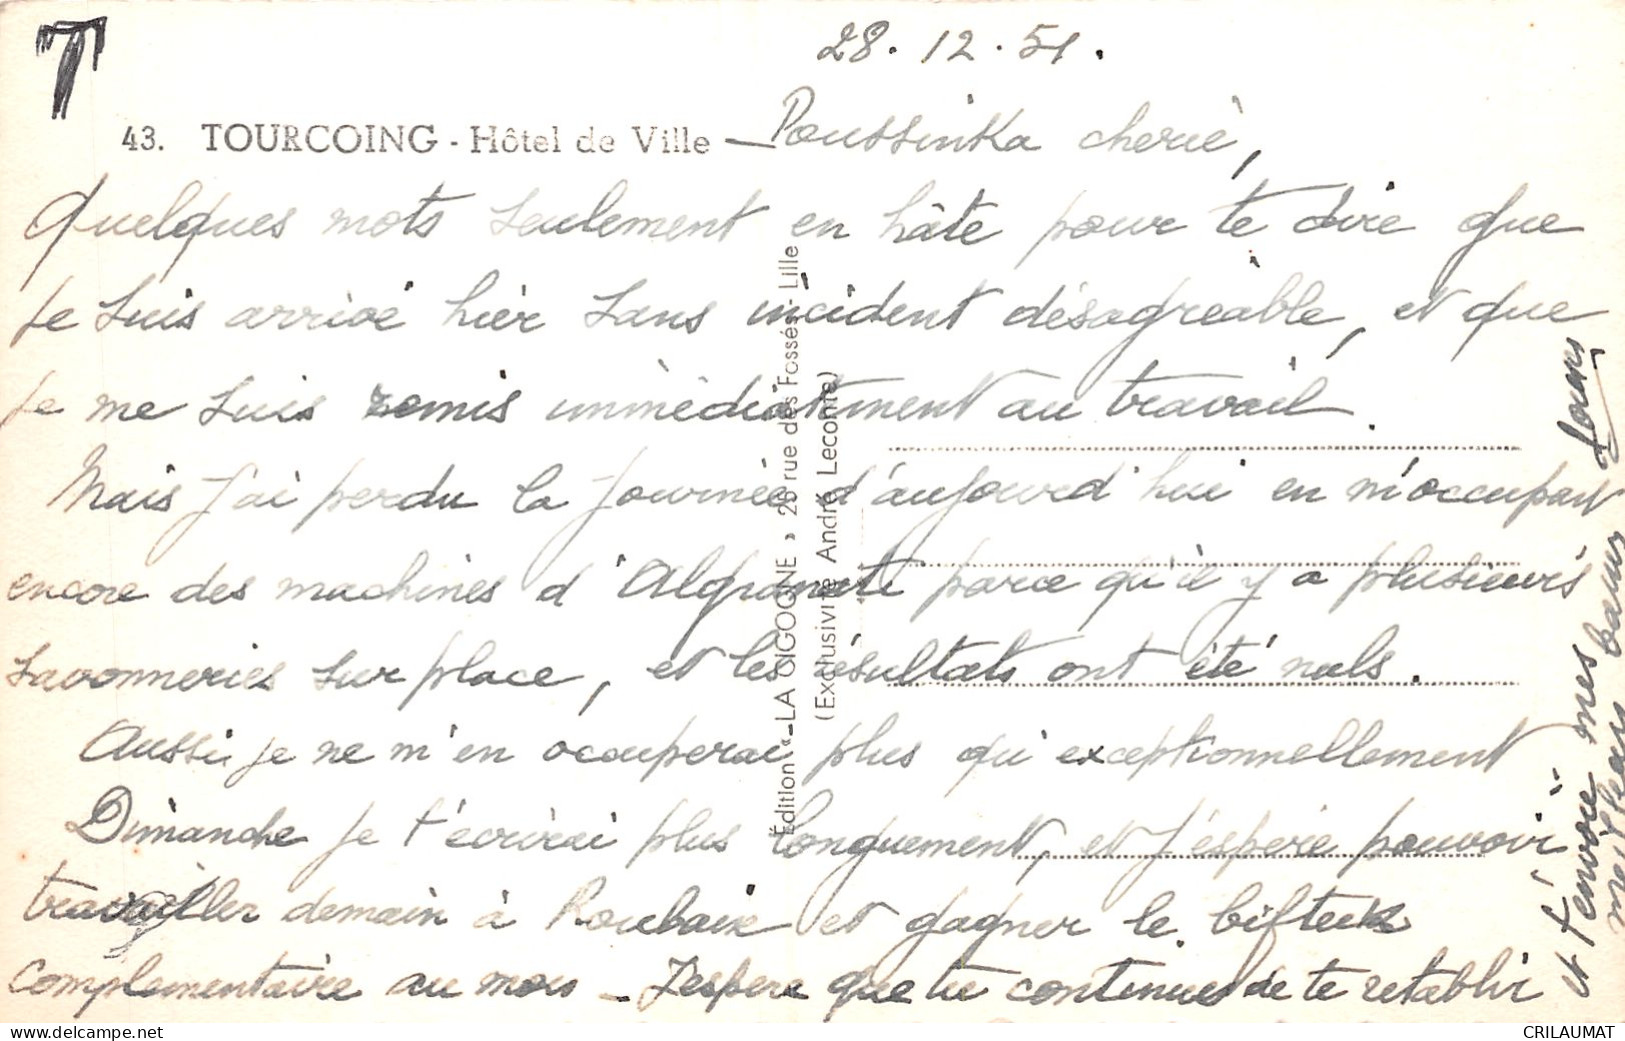 T
28. 12. 51.
43. TOURCOING - Hôtel de Ville
Poussinka cherie,
Quelques mots seulement en hâte pour te dire que
je suis arrivé hier sans incident désagréable, et que
je me suis remis immédiatement au travail.
Mais j'ai perdu la journée d'aujourd'hui en m'occupant
encore des machines d'
parce qu'il y a plusieurs
savonneries sur place, et les résultats ont été nuls.
Aussi je ne m'en occuperai plus qu'exceptionnellement
Dimanche je t'écrirai plus longuement, et j'espère pouvoir
travailler demain à Roubaix et gagner le bifteck
complémentaire au mois - J'espere que tu continues de te retablir
et t'envoie mes
meilleurs baisers
Édition «-LA CIGOGNE » 28 rue des Fossés - Lille
(Exclusivité André Leconte)
CRILAUMAT